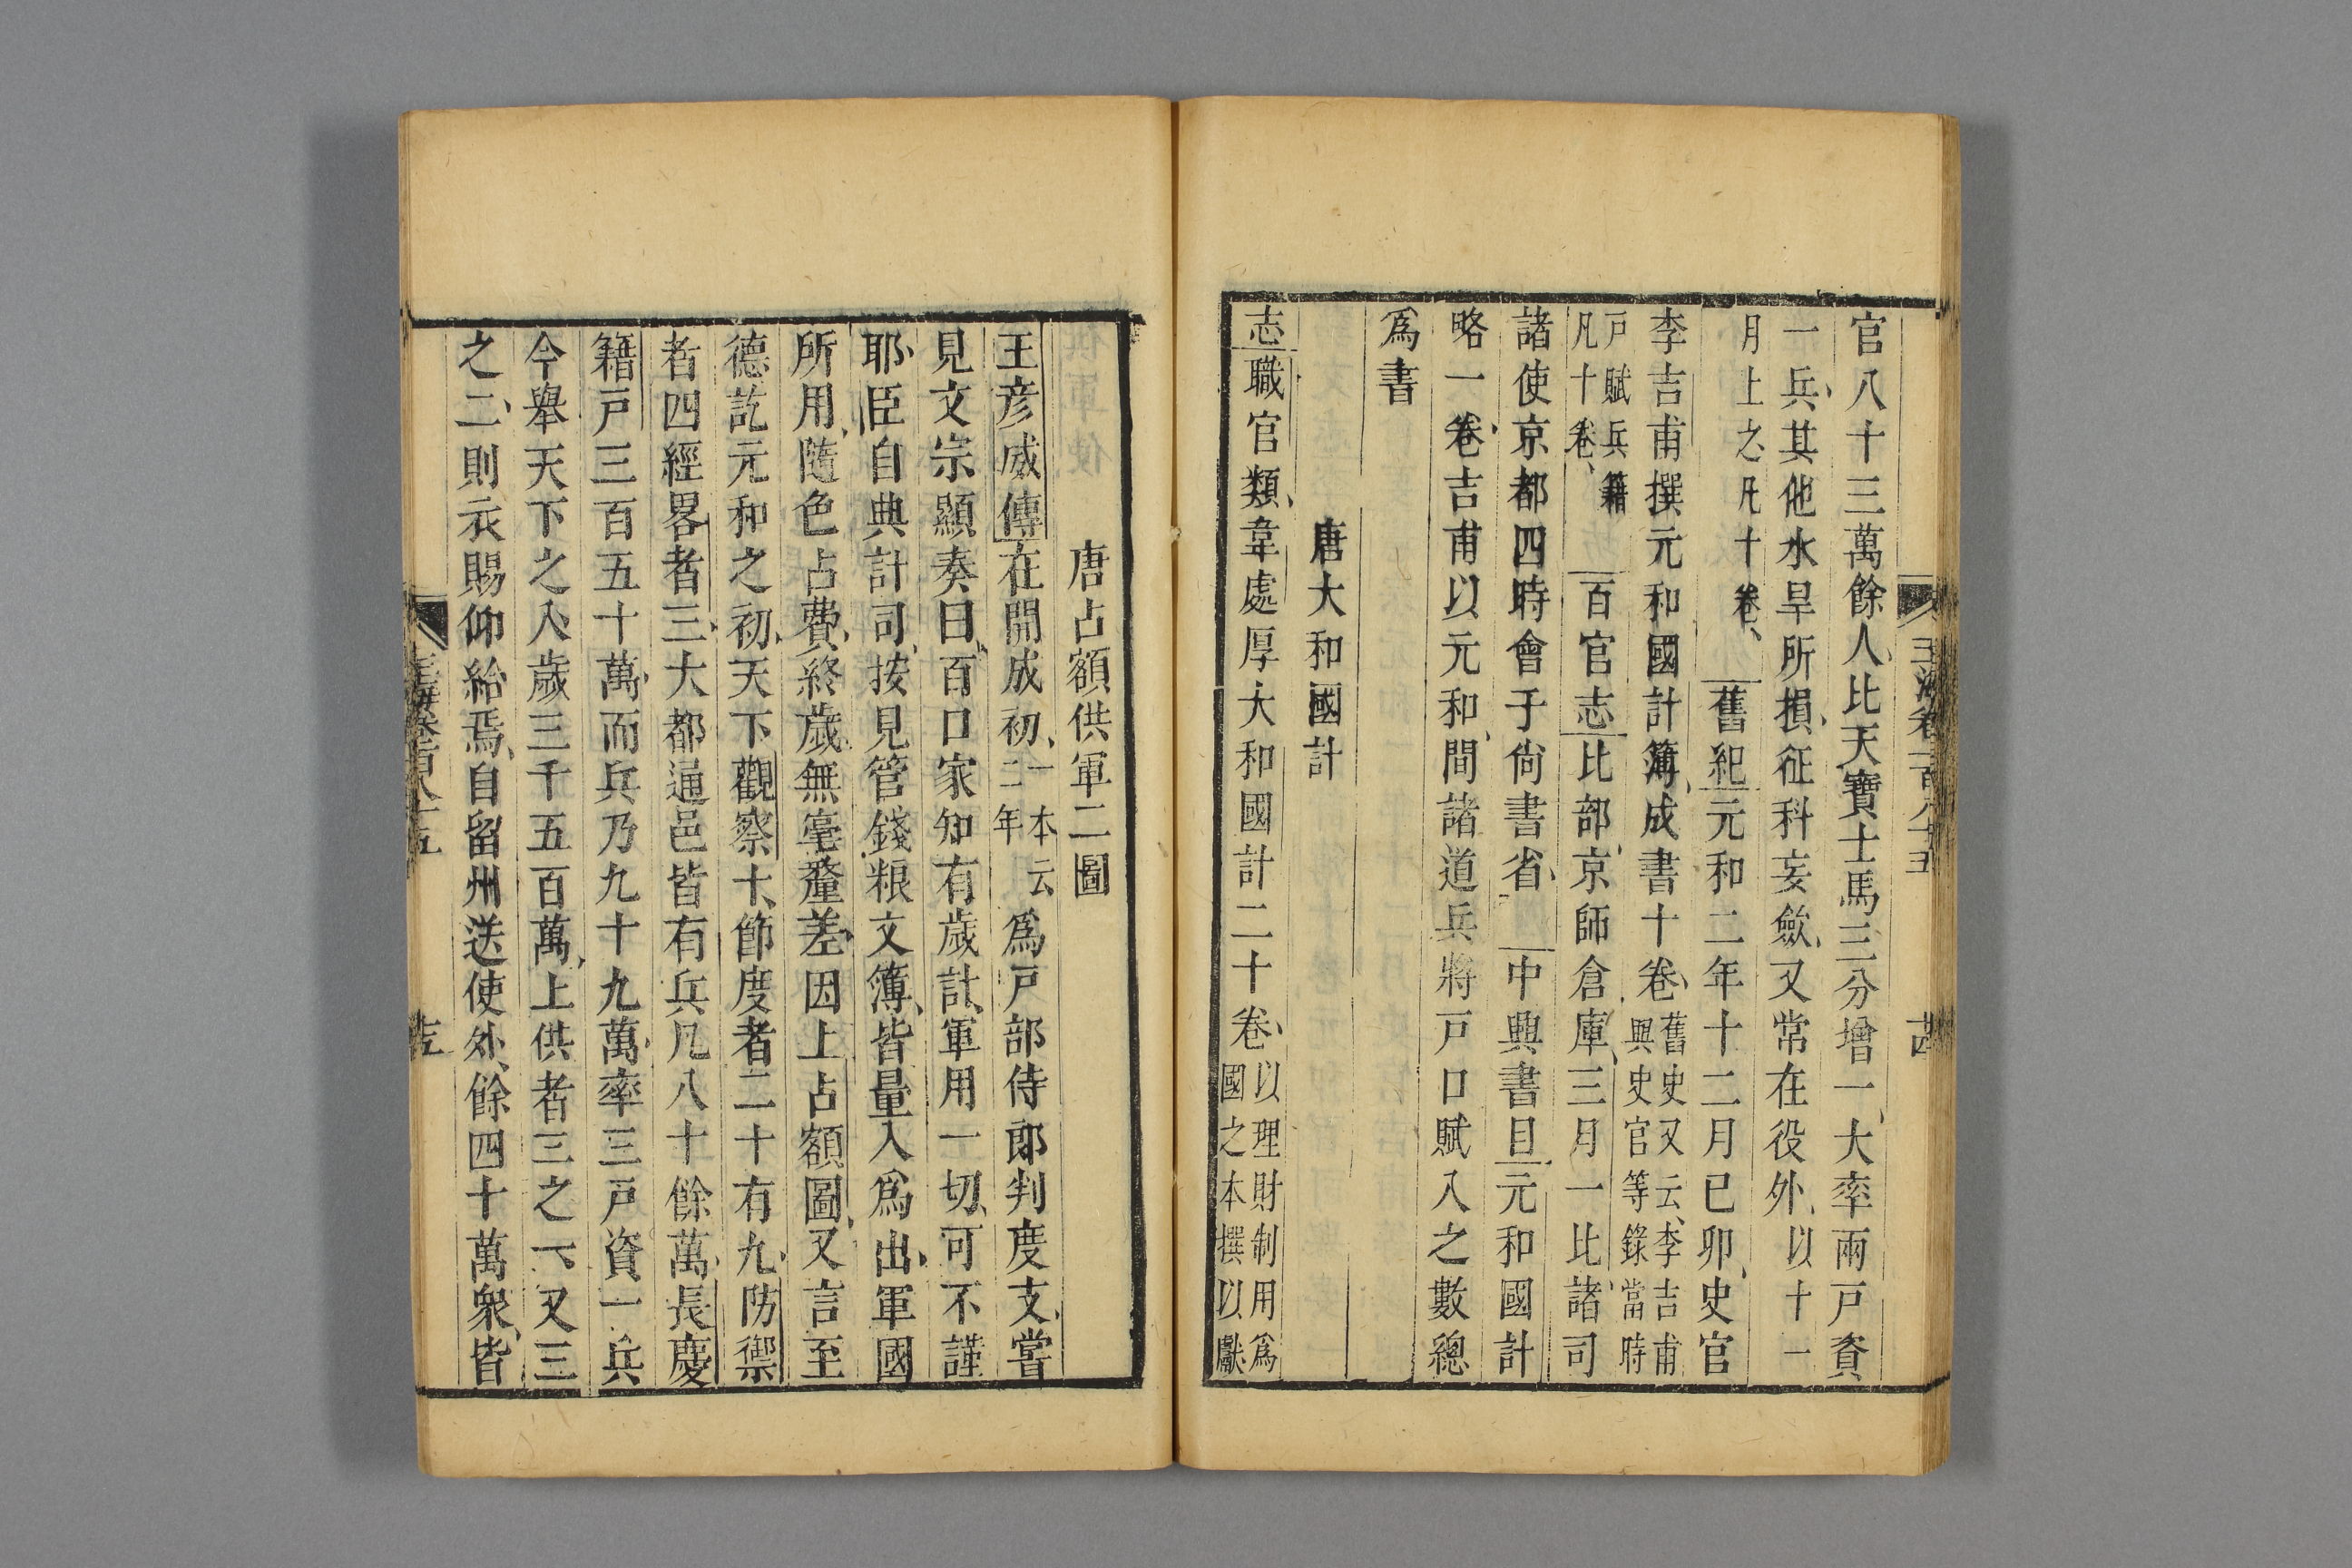 玉海卷一百八十五 十四
官八十三萬餘人比天寶士馬三分增一大率兩戸資
一兵其他水旱所損征科妄斂又常在役外以十一
月上之凡十卷舊紀元和二年十二月己卯史官
李吉甫撰元和國計簿成書十卷舊史又云李吉甫
興史官等錄當時
戸賦兵籍
凡十卷百官志比部京師倉庫三月一比諸司
諸使京都四時會于尙書省中興書目元和國計
略一卷吉甫以元和間諸道兵將戸口賦入之數總
爲書
唐大和國計
志職官類韋處厚大和國計二十卷以理財制用爲
國之本撰以獻
唐占額供軍二圖
王彦威傳在開成初一本云
二年爲戸部侍郎判度支嘗
見文宗顯奏曰百口家知有歲計軍用一切可不謹
耶臣自典計司按見管錢粮文簿皆量入爲出軍國
所用隨色占費終歲無毫釐差因上占額圖又言至
德訖元和之初天下觀察十節度者二十有九防禦
者四經畧者三大都通邑皆有兵凡八十餘萬長慶
籍戸三百五十萬而兵乃九十九萬率三戸資一兵
今舉天下之入歲三千五百萬上供者三之一又三
之二則衣賜仰給焉自留州送使外餘四十萬衆皆
玉海卷一百八十五 十五